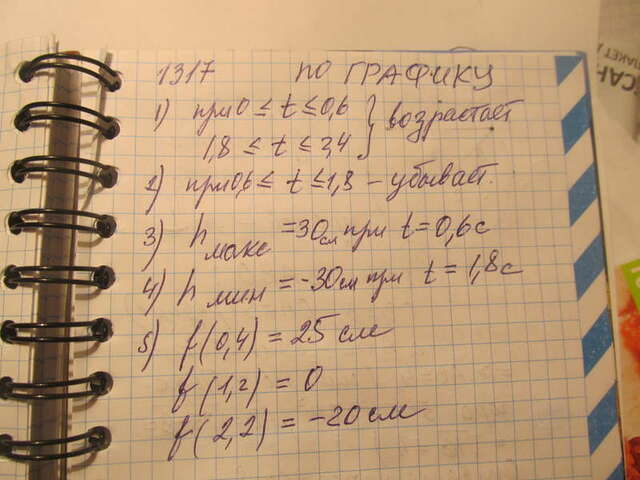 1317 ПО ГРАФИКУ
1) при 0 ≤ t ≤ 0,6 } возрастает
1,8 ≤ t ≤ 2,4
2) при 0,6 ≤ t ≤ 1,8 – убывает.
3) h макс = 30см при t = 0,6с
4) h мин = -30см при t = 1,8с
5) f(0,4) = 25 см
f(1,2) = 0
f(2,2) = -20см
САН
ПАКЕТ